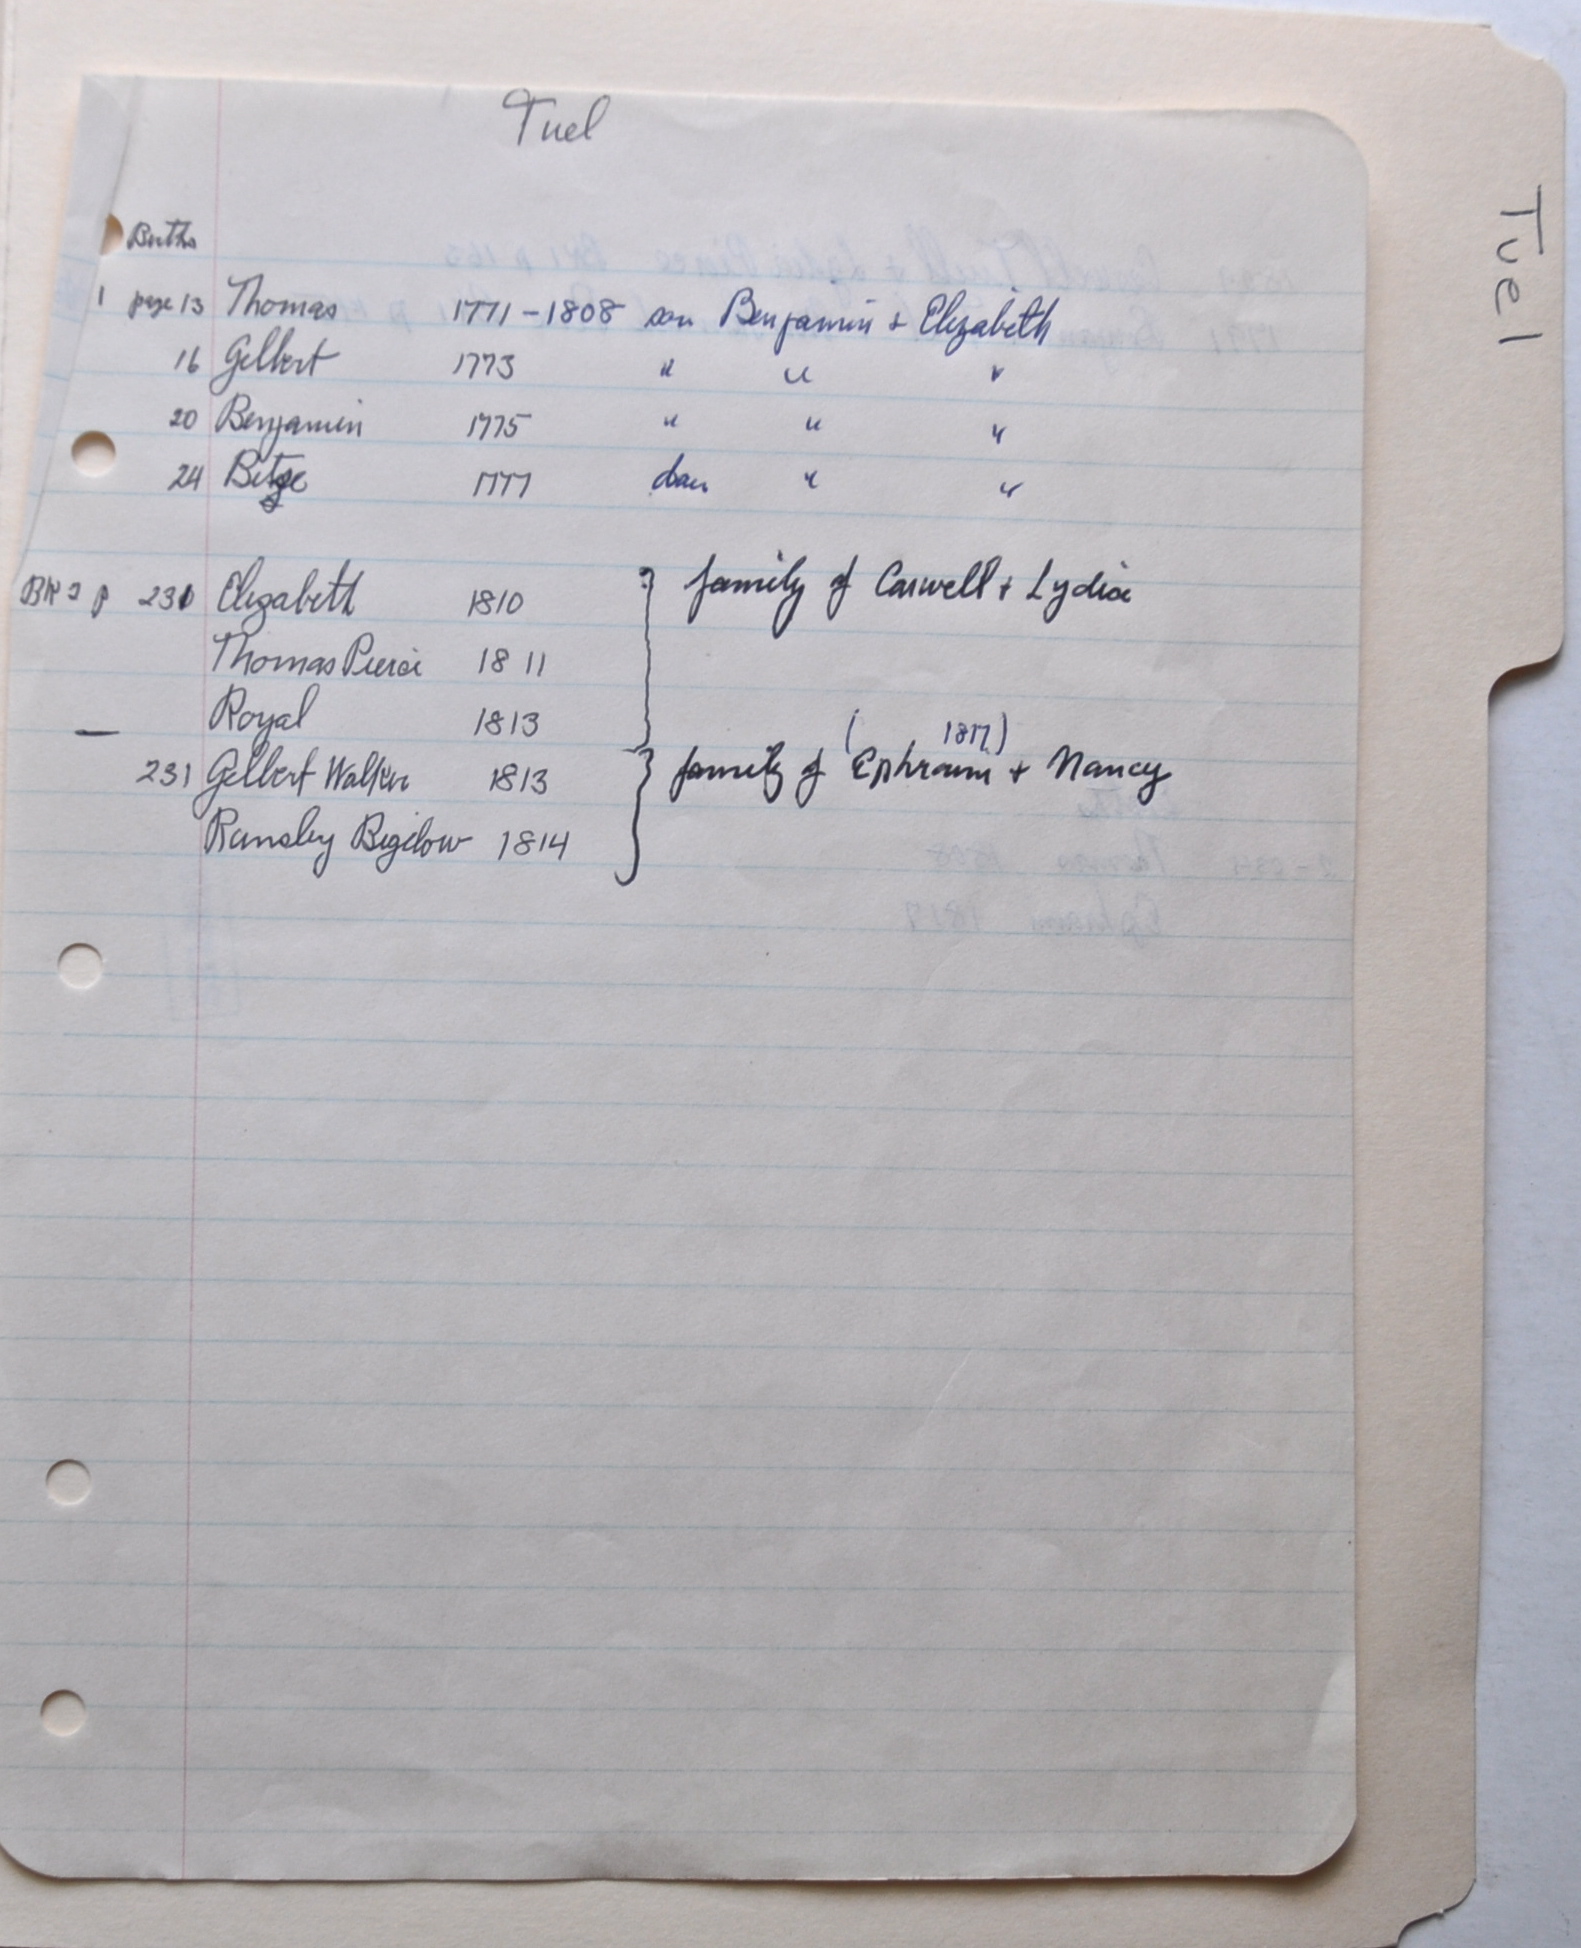 Tuel
Tuel
Births
1 page 13 Thomas 1771-1808 son Benjamin + Elizabeth
16 Gilbert 1773 " " "
20 Benjamin 1775 " " "
24 1777 dau " "
BK 2 p 230 Elizabeth 1810 family of Carwell + Lydia
Thomas Pierce 1811
Royal 1813
(1817)
231 Gilbert Walker 1813 family of Ephraim + Nancy
Ransley Bigelow 1814